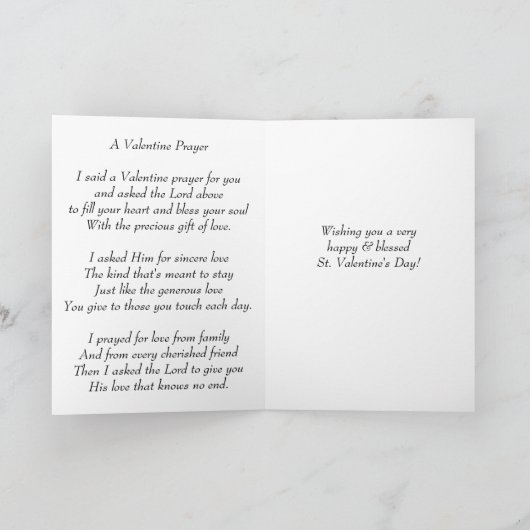 A Valentine Prayer
I said a Valentine prayer for you
and asked the Lord above
to fill your heart and bless your soul
With the precious gift of love.
I asked Him for sincere love
The kind that's meant to stay
Just like the generous love
You give to those you touch each day.
I prayed for love from family
And from every cherished friend
Then I asked the Lord to give you
His love that knows no end.
Wishing you a very
happy & blessed
St. Valentine's Day!